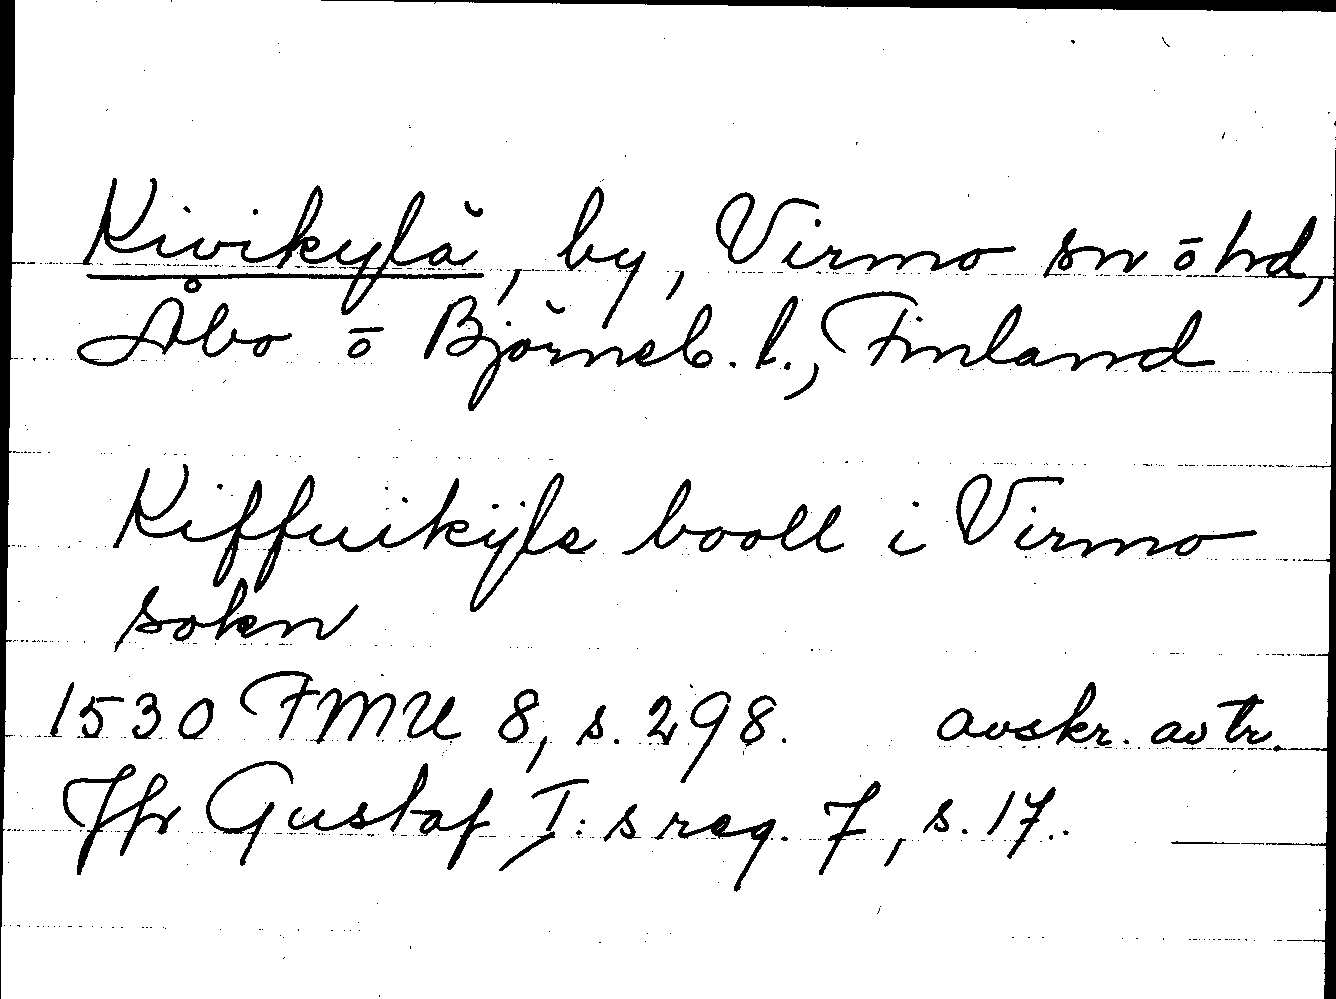 Kivikylä, by, Virmo sn ō hd,
Åbo ō Björneb. l., Finland
Kiffuikÿla booll i Virmo
sokn
1530 FMU 8, s. 298. avskr. av tr.
Jfr Gustaf I: s reg. 7, s. 17.